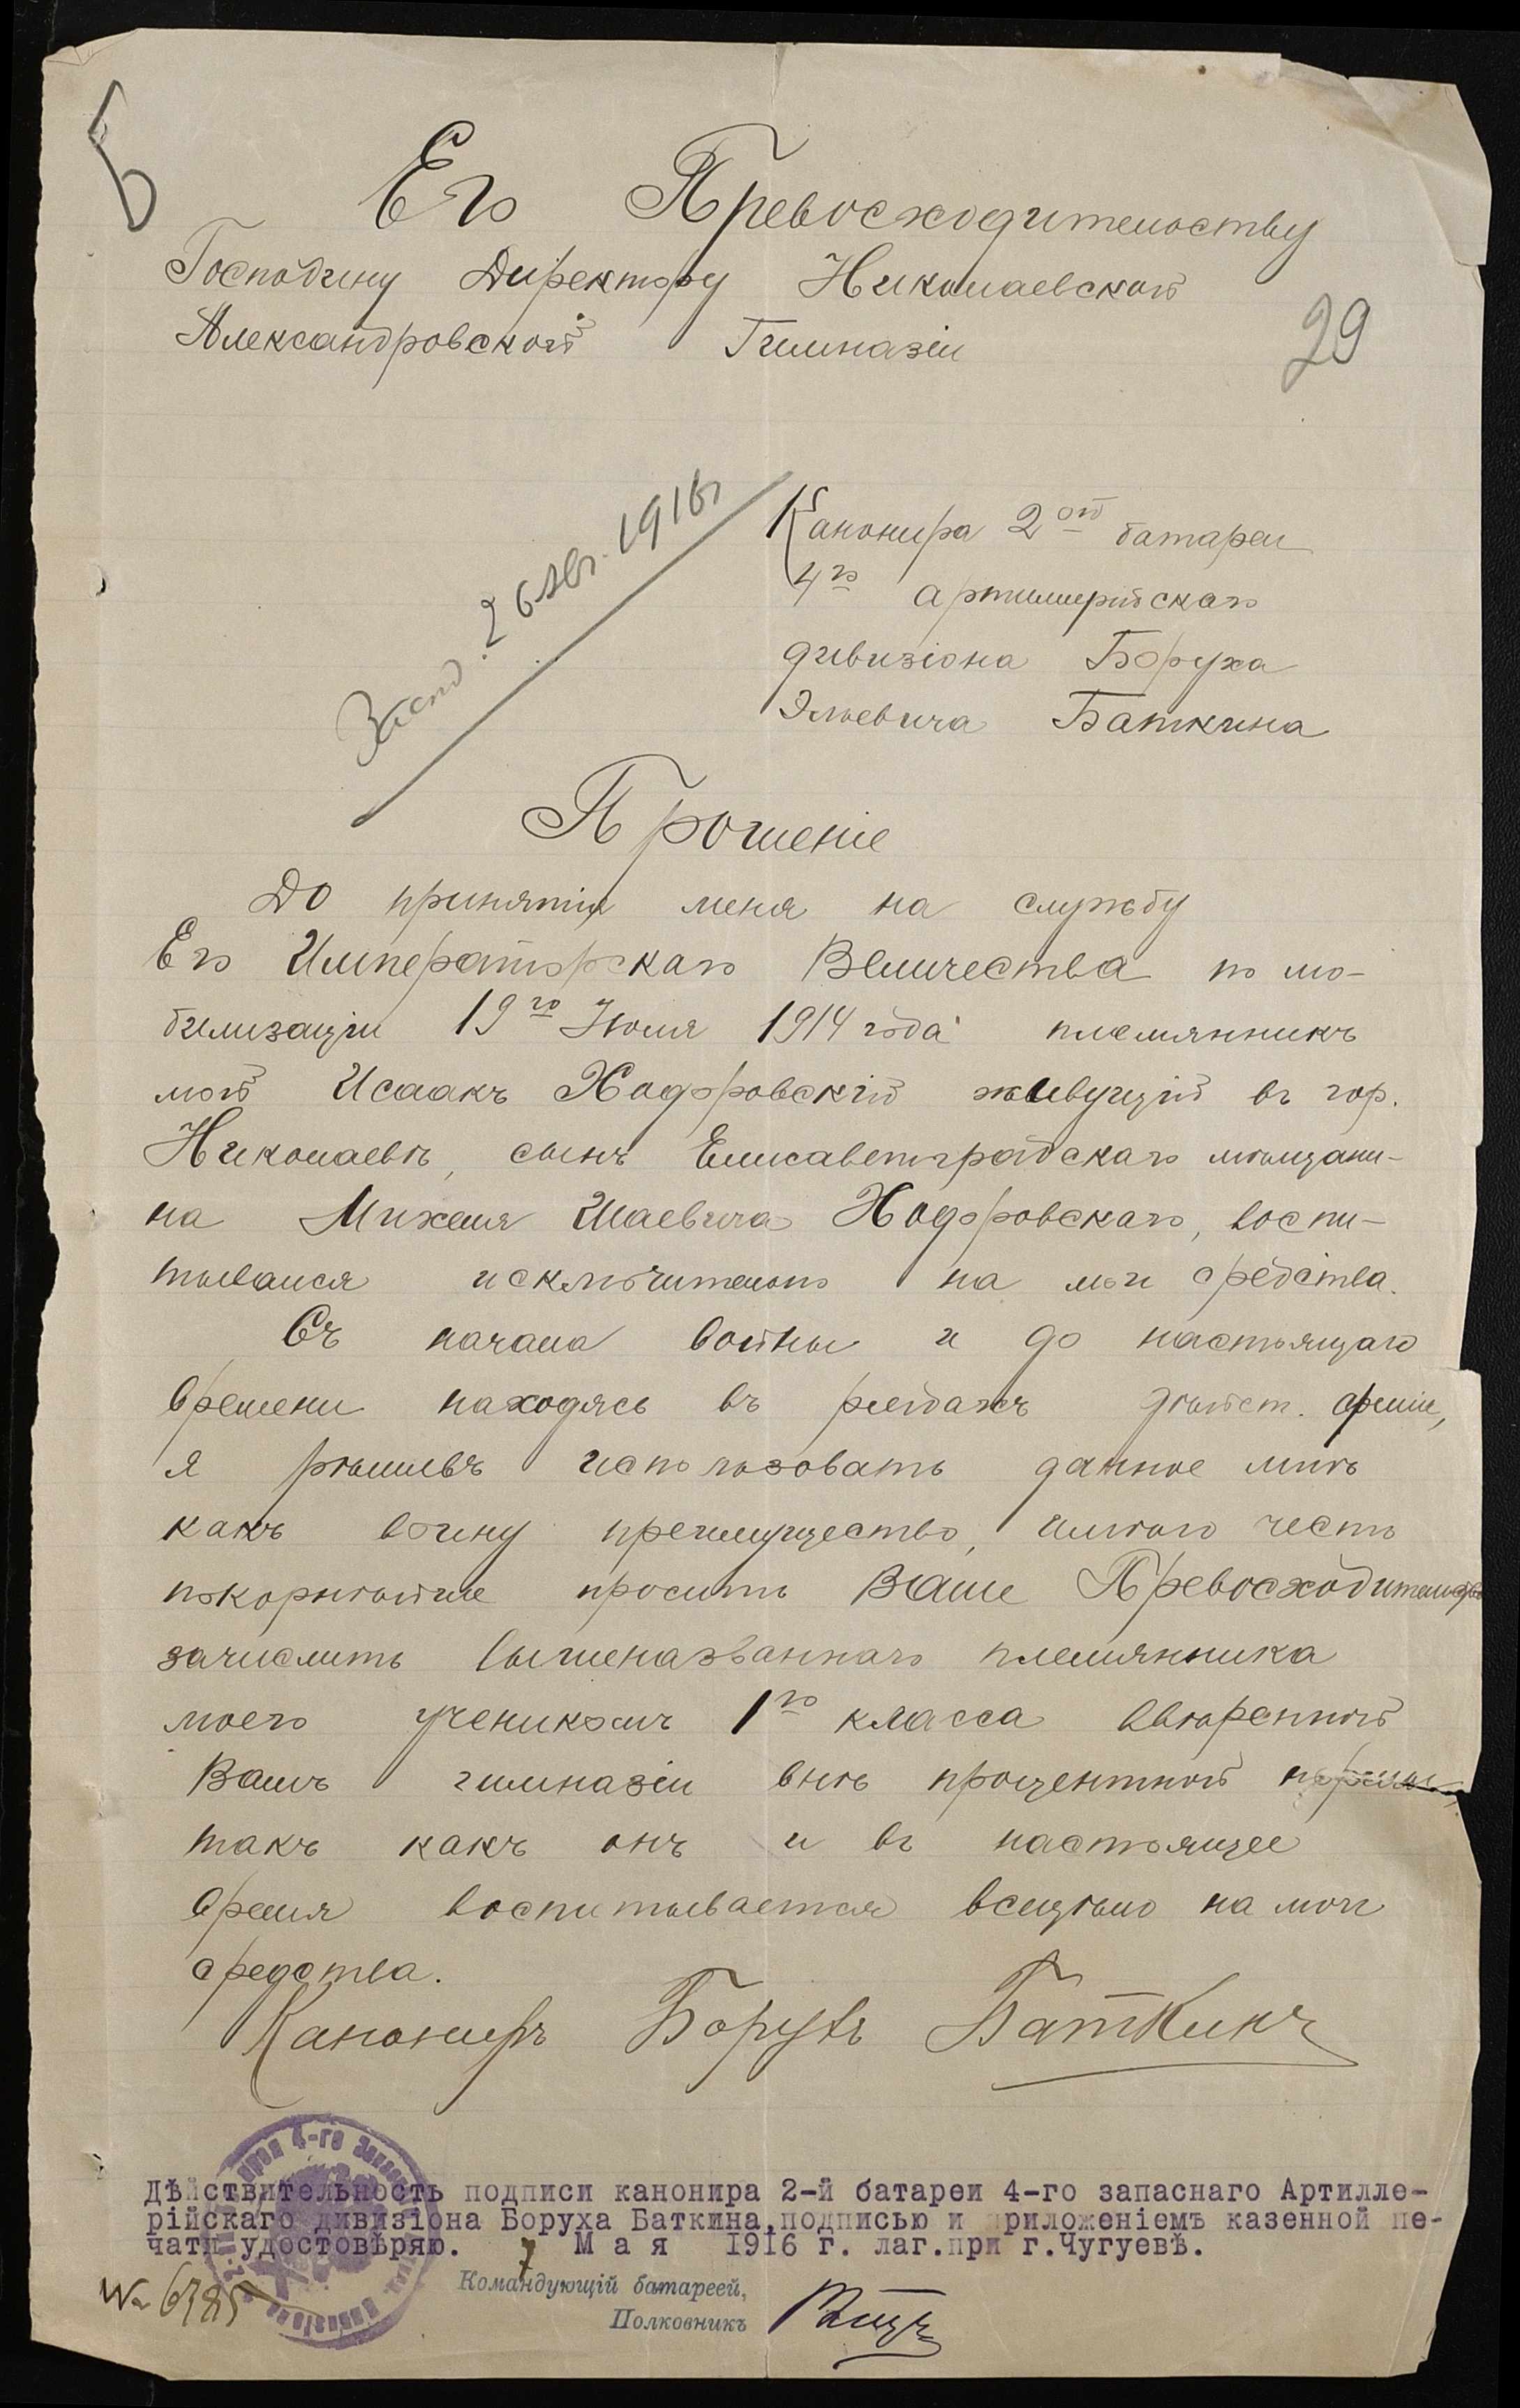 Б
Его Превосходительству
Господину Директору Николаевской
Александровской Гимназіи
29
Засѣд. 26 Авг. 1916 г
Канонира 2ой батареи
4го артиллерійскаго
дивизіона Боруха
Эльевича Баткина
Прошеніе
До принятія меня на службу
Его Императорскаго Величества по мо-
билизаціи 19го Іюля 1914 года племянникъ
мой Исаакъ Ходоровскій живущій въ гор.
Николаевѣ, сынъ Елисаветградскаго мѣщани-
на Михеля Шаевича Ходоровскаго, воспи-
тывался исключительно на мои средства.
Съ начала войны и до настоящаго
времени находясь въ рядахъ дѣйст. арміи,
я рѣшивъ использовать данное мнѣ
какъ воину преимущество, имѣю честь
покорнѣйше просить Ваше Превосходительство
зачислить вышеназваннаго племянника
моего ученикомъ 1го класса ввѣренной
Вамъ гимназіи внѣ процентной нормы,
такъ какъ онъ и въ настоящее
время воспитывается всецѣло на мои
средства.
Канониръ Борухъ Баткинъ
Дѣйствительность подписи канонира 2-й батареи 4-го запаснаго Артилле-
рійскаго дивизіона Боруха Баткина, подписью и приложеніемъ казенной пе-
чати удостовѣряю. 7 Мая 1916 г. лаг.при г.Чугуевѣ.
Командующій батареей,
Полковникъ
№ 6785